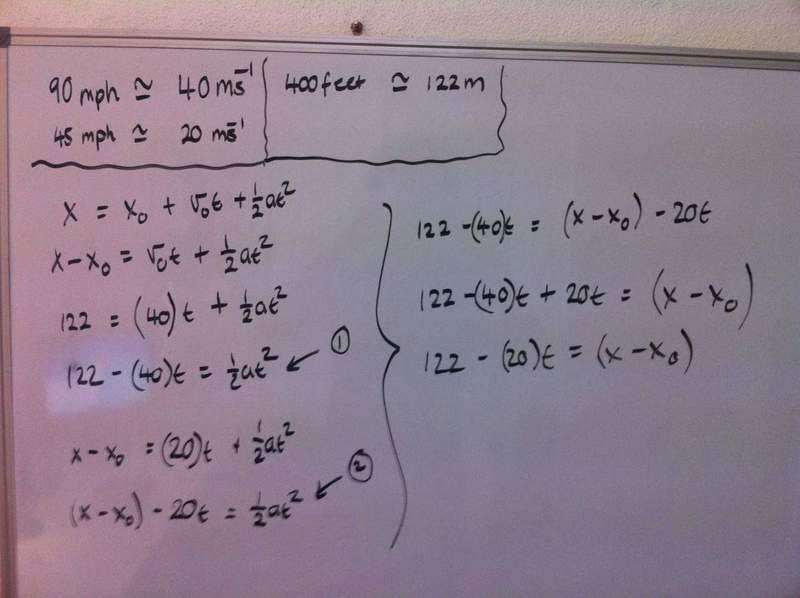 90 mph ≃ 40 ms⁻¹
45 mph ≃ 20 ms⁻¹
400 feet ≃ 122 m
x = x₀ + v₀t + ½at²
x - x₀ = v₀t + ½at²
122 = (40)t + ½at²
122 - (40)t = ½at² ← ①
x - x₀ = (20)t + ½at²
(x - x₀) - 20t = ½at² ← ②
122 - (40)t = (x - x₀) - 20t
122 - (40)t + 20t = (x - x₀)
122 - (20)t = (x - x₀)